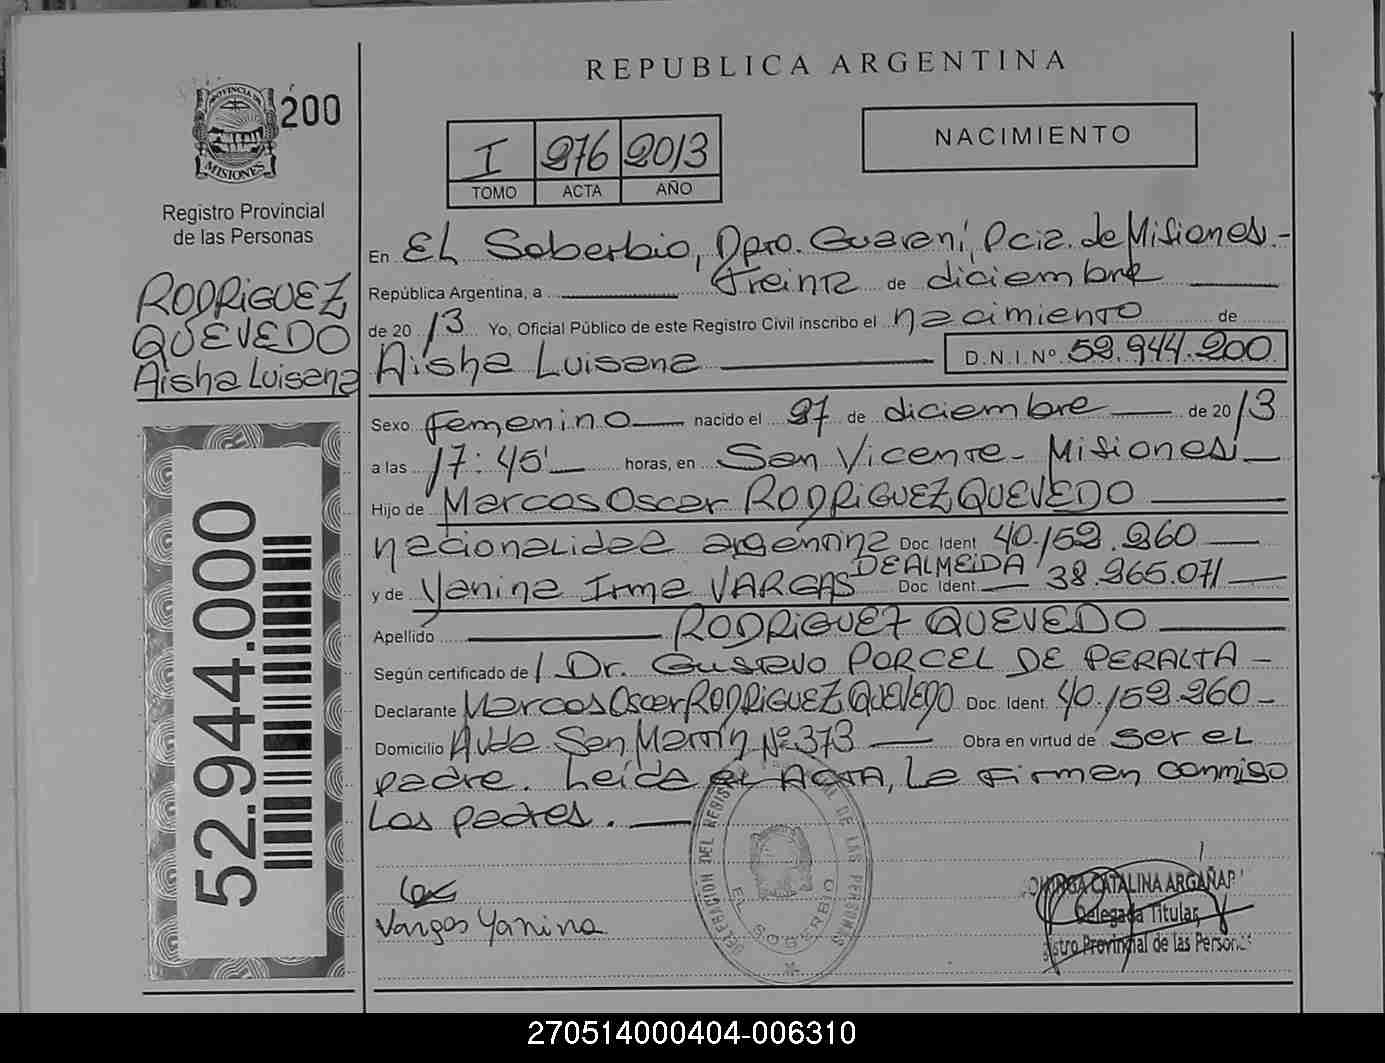 REPUBLICA ARGENTINA
PROVINCIA DE
MISIONES
200
Registro Provincial
de las Personas
I 276 2013
TOMO ACTA AÑO
NACIMIENTO
RODRIGUEZ
QUEVEDO
Aisha Luisana
52.944.000
En EL Soberbio, Dpto. Guaraní, Pcia. de Misiones.-
República Argentina, a treinta de diciembre
de 2013 Yo, Oficial Público de este Registro Civil inscribo el nacimiento de
Aisha Luisana D.N.I.Nº 52.944.200
Sexo femenino nacido el 27 de diciembre de 2013
a las 17:45' horas, en San Vicente - Misiones
Hijo de Marcos Oscar RODRIGUEZ QUEVEDO
nacionalidad argentina Doc. Ident. 40.152.260
y de Yanina Irma VARGAS DEALMEIDA Doc. Ident. 38.265.071
Apellido RODRIGUEZ QUEVEDO
Según certificado de / Dr. Gustavo PORCEL DE PERALTA -
Declarante Marcos Oscar RODRIGUEZ QUEVEDO Doc. Ident. 40.152.260-
Domicilio Avda San Martín Nº 373 Obra en virtud de ser el
padre. Leída el ACTA, la firman conmigo
los padres.
Vargas Yanina
DEL REGIS DE LAS PERSONAS
EL SOBERBIO
CATALINA ARGAÑAR
Delegada Titular
stro Provincial de las Person
270514000404-006310